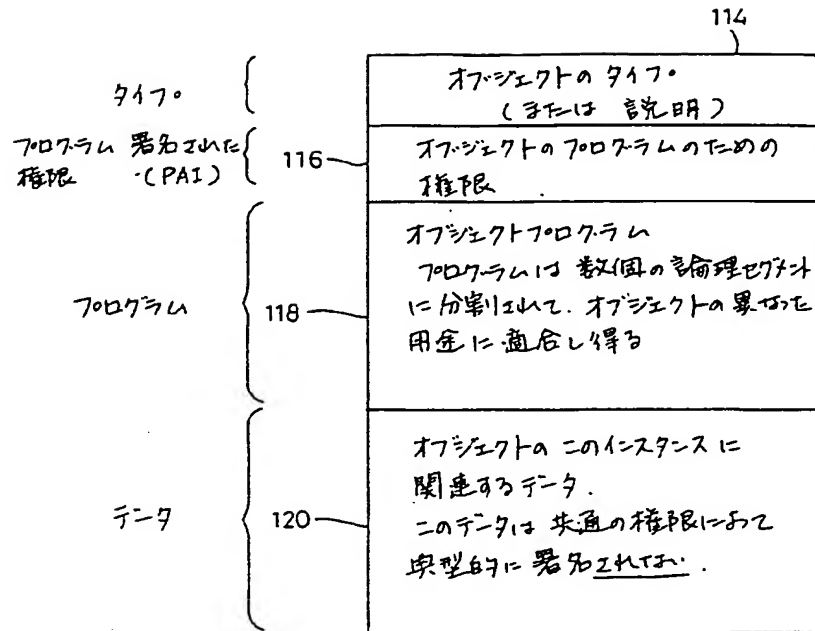 114
タイプ
オブジェクトの タイプ
(または 説明)
プログラム 署名された
権限 (PAI)
116
オブジェクトのプログラムのための
権限
プログラム
118
オブジェクトプログラム
プログラムは 数個の論理セグメント
に分割されて、オブジェクトの異なった
用途に適合し得る
データ
120
オブジェクトの このインスタンスに
関連するデータ.
このデータは 共通の権限によって
典型的に署名されてない.